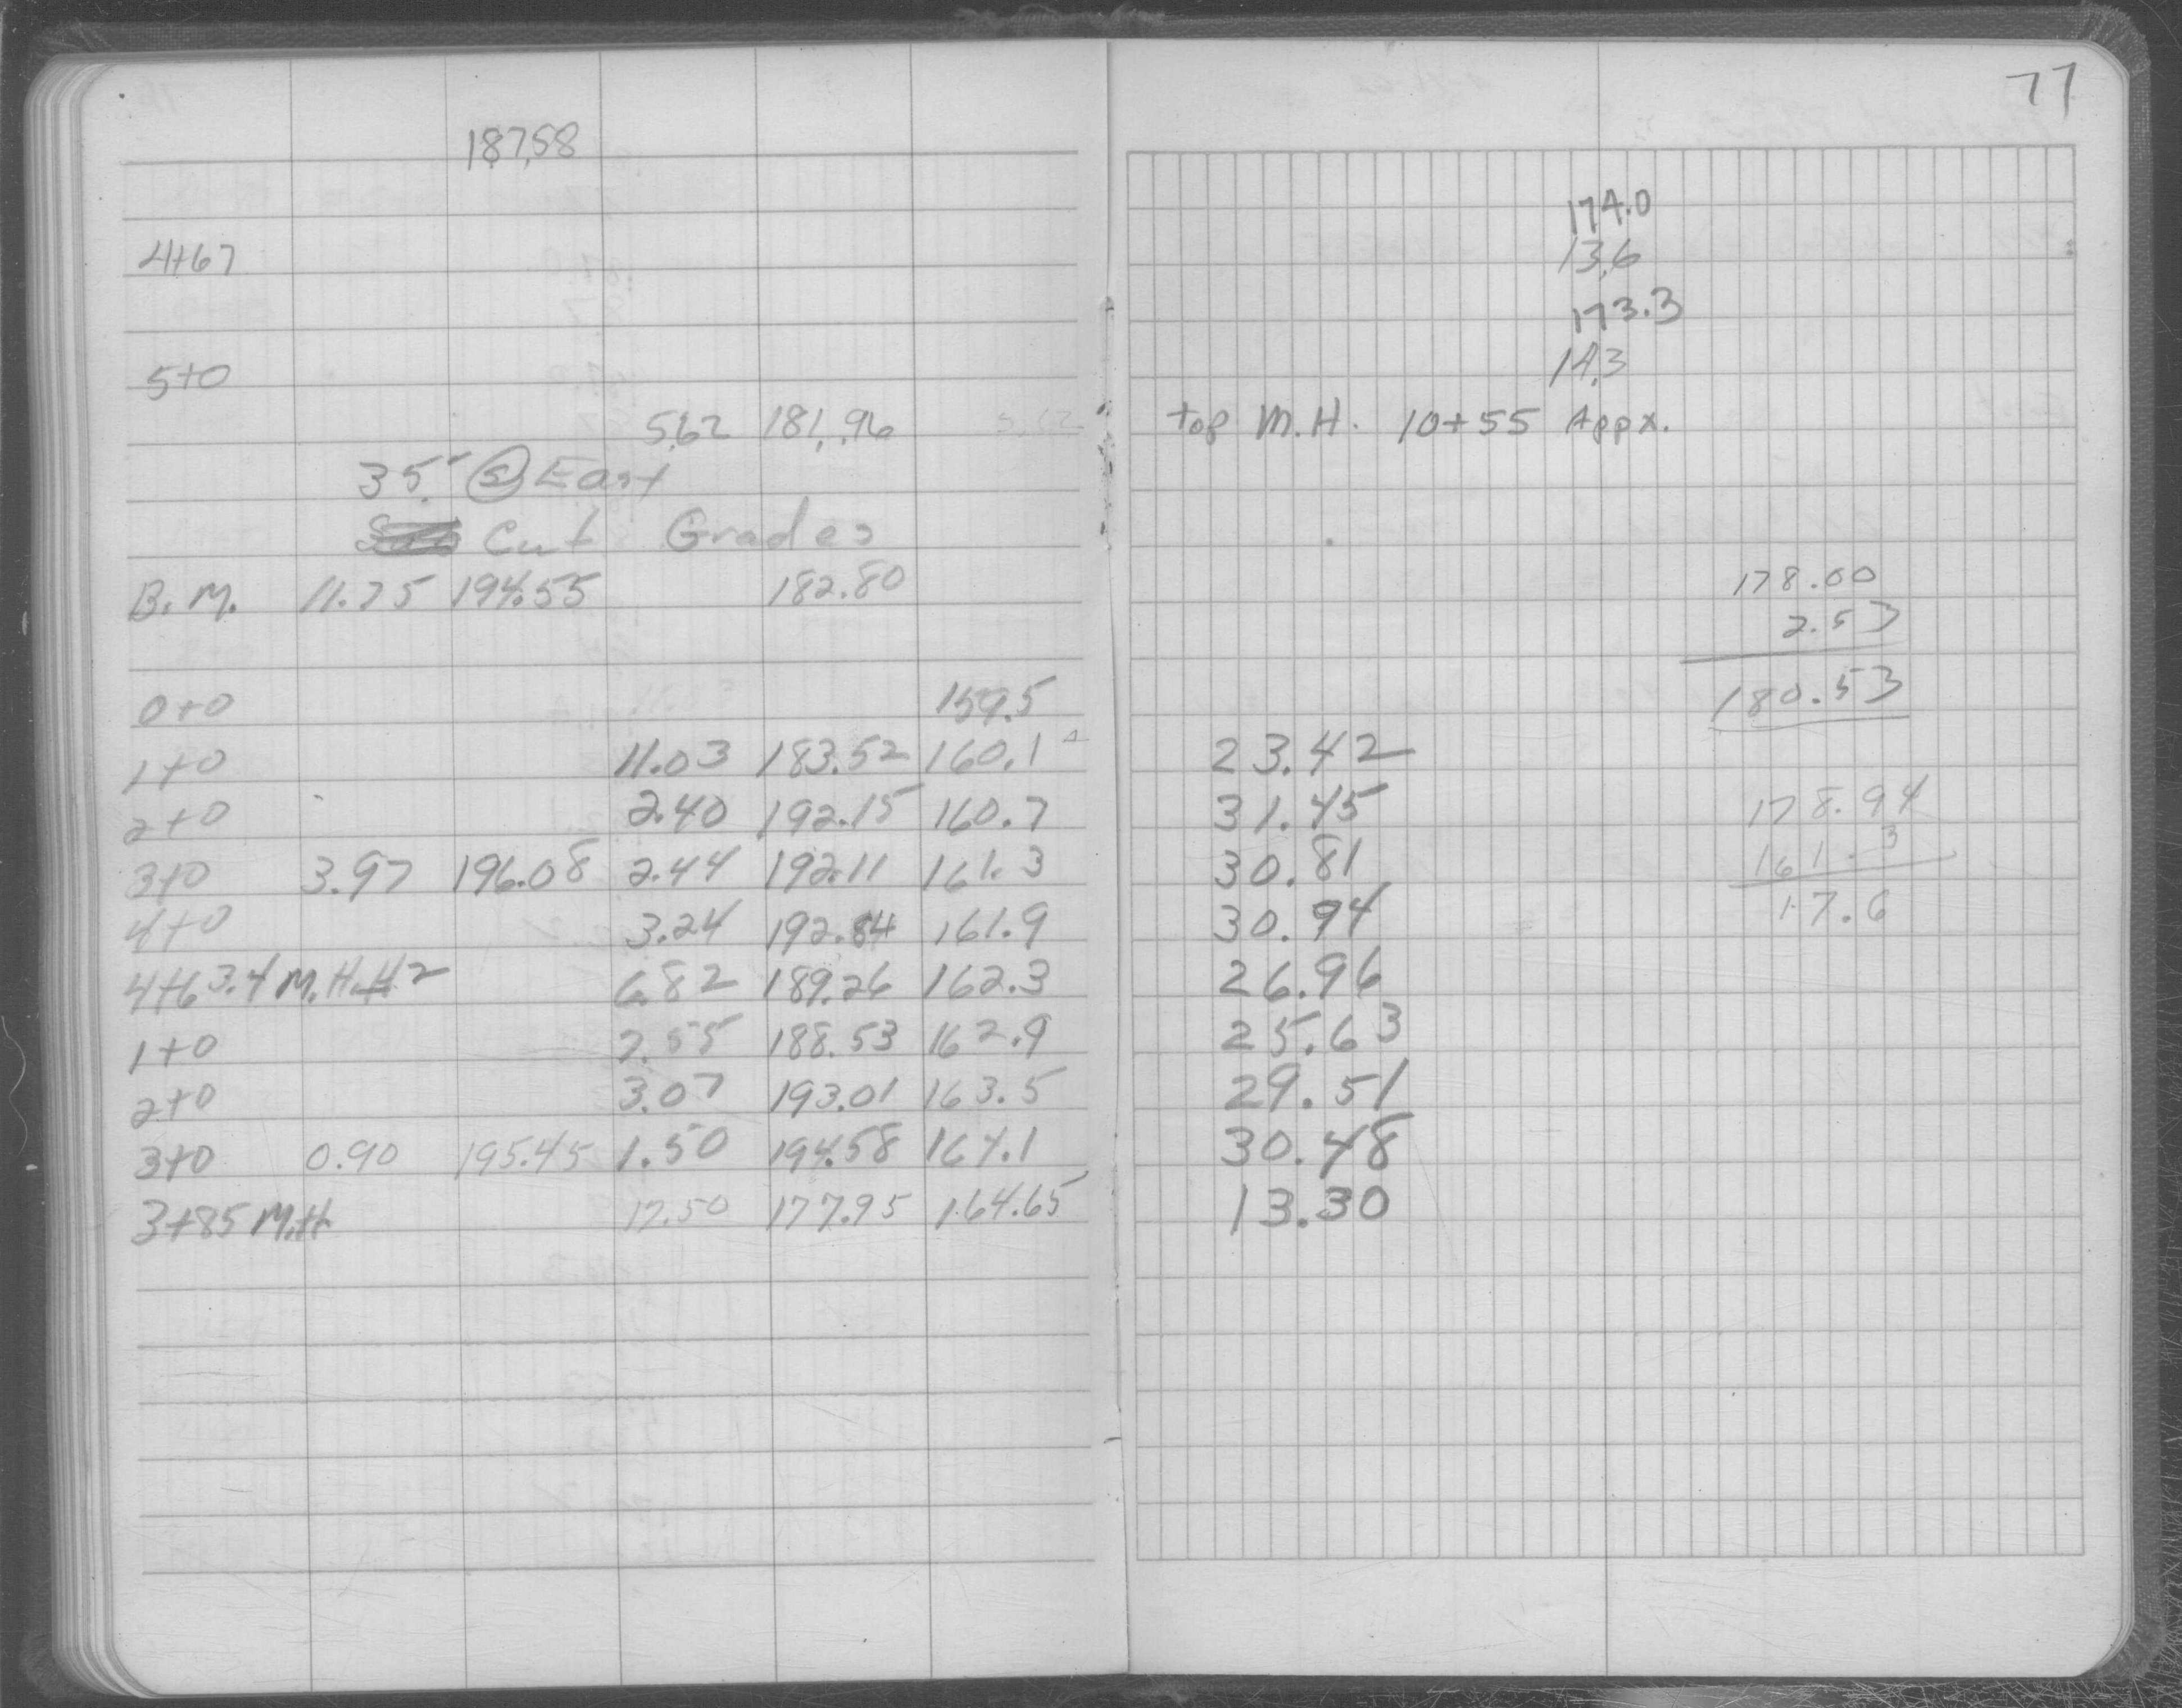 77
187.58
174.0
4+67 13.6
173.3
5+0 14.3
5.62 181.96 5.62 top M.H. 10+55 Appx.
35' (S) East
Cut Grades
B.M. 11.75 194.55 182.80 178.00
2.53
0+0 159.5 180.53
1+0 11.03 183.52 160.1 23.42
2+0 2.40 192.15 160.7 31.45 178.94
3+0 3.97 196.08 2.44 192.11 161.3 30.81 161.3
4+0 3.24 192.84 161.9 30.94 17.6
4+63.4 M.H.#2 6.82 189.26 162.3 26.96
1+0 7.55 188.53 162.9 25.63
2+0 3.07 193.01 163.5 29.51
3+0 0.90 195.45 1.50 194.58 164.1 30.48
3+85 M.H. 17.50 177.95 164.65 13.30